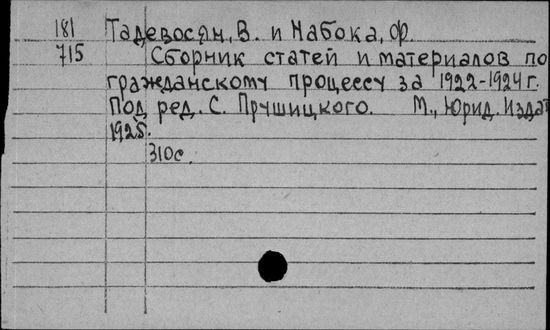 181 Тадевосян, В. и Набока, Ф.
715 Сборник статей и материалов по
гражданскому процессу за 1922-1924 г.
Под ред. С. Прушицкого. М., Юрид. Издат
1925.
310 с.